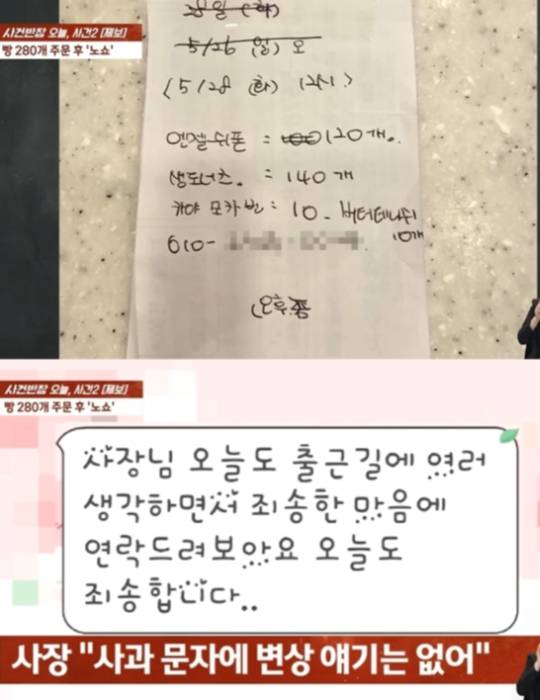 사건반장 오늘, 사건2 [제보]
빵 280개 주문 후 '노쇼'
5/26 (일) 오
(5/28 (화) 12시)
엔젤쉬폰 : 120개.
생도너츠. : 140개
카야 모카번 : 10. 버터데니쉬
10개
010-
(오후
사건반장 오늘, 사건2 [제보]
빵 280개 주문 후 '노쇼'
사장님 오늘도 출근길에 여러
생각하면서 죄송한 마음에
연락드려보아요 오늘도
죄송합니다..
사장 "사과 문자에 변상 얘기는 없어"